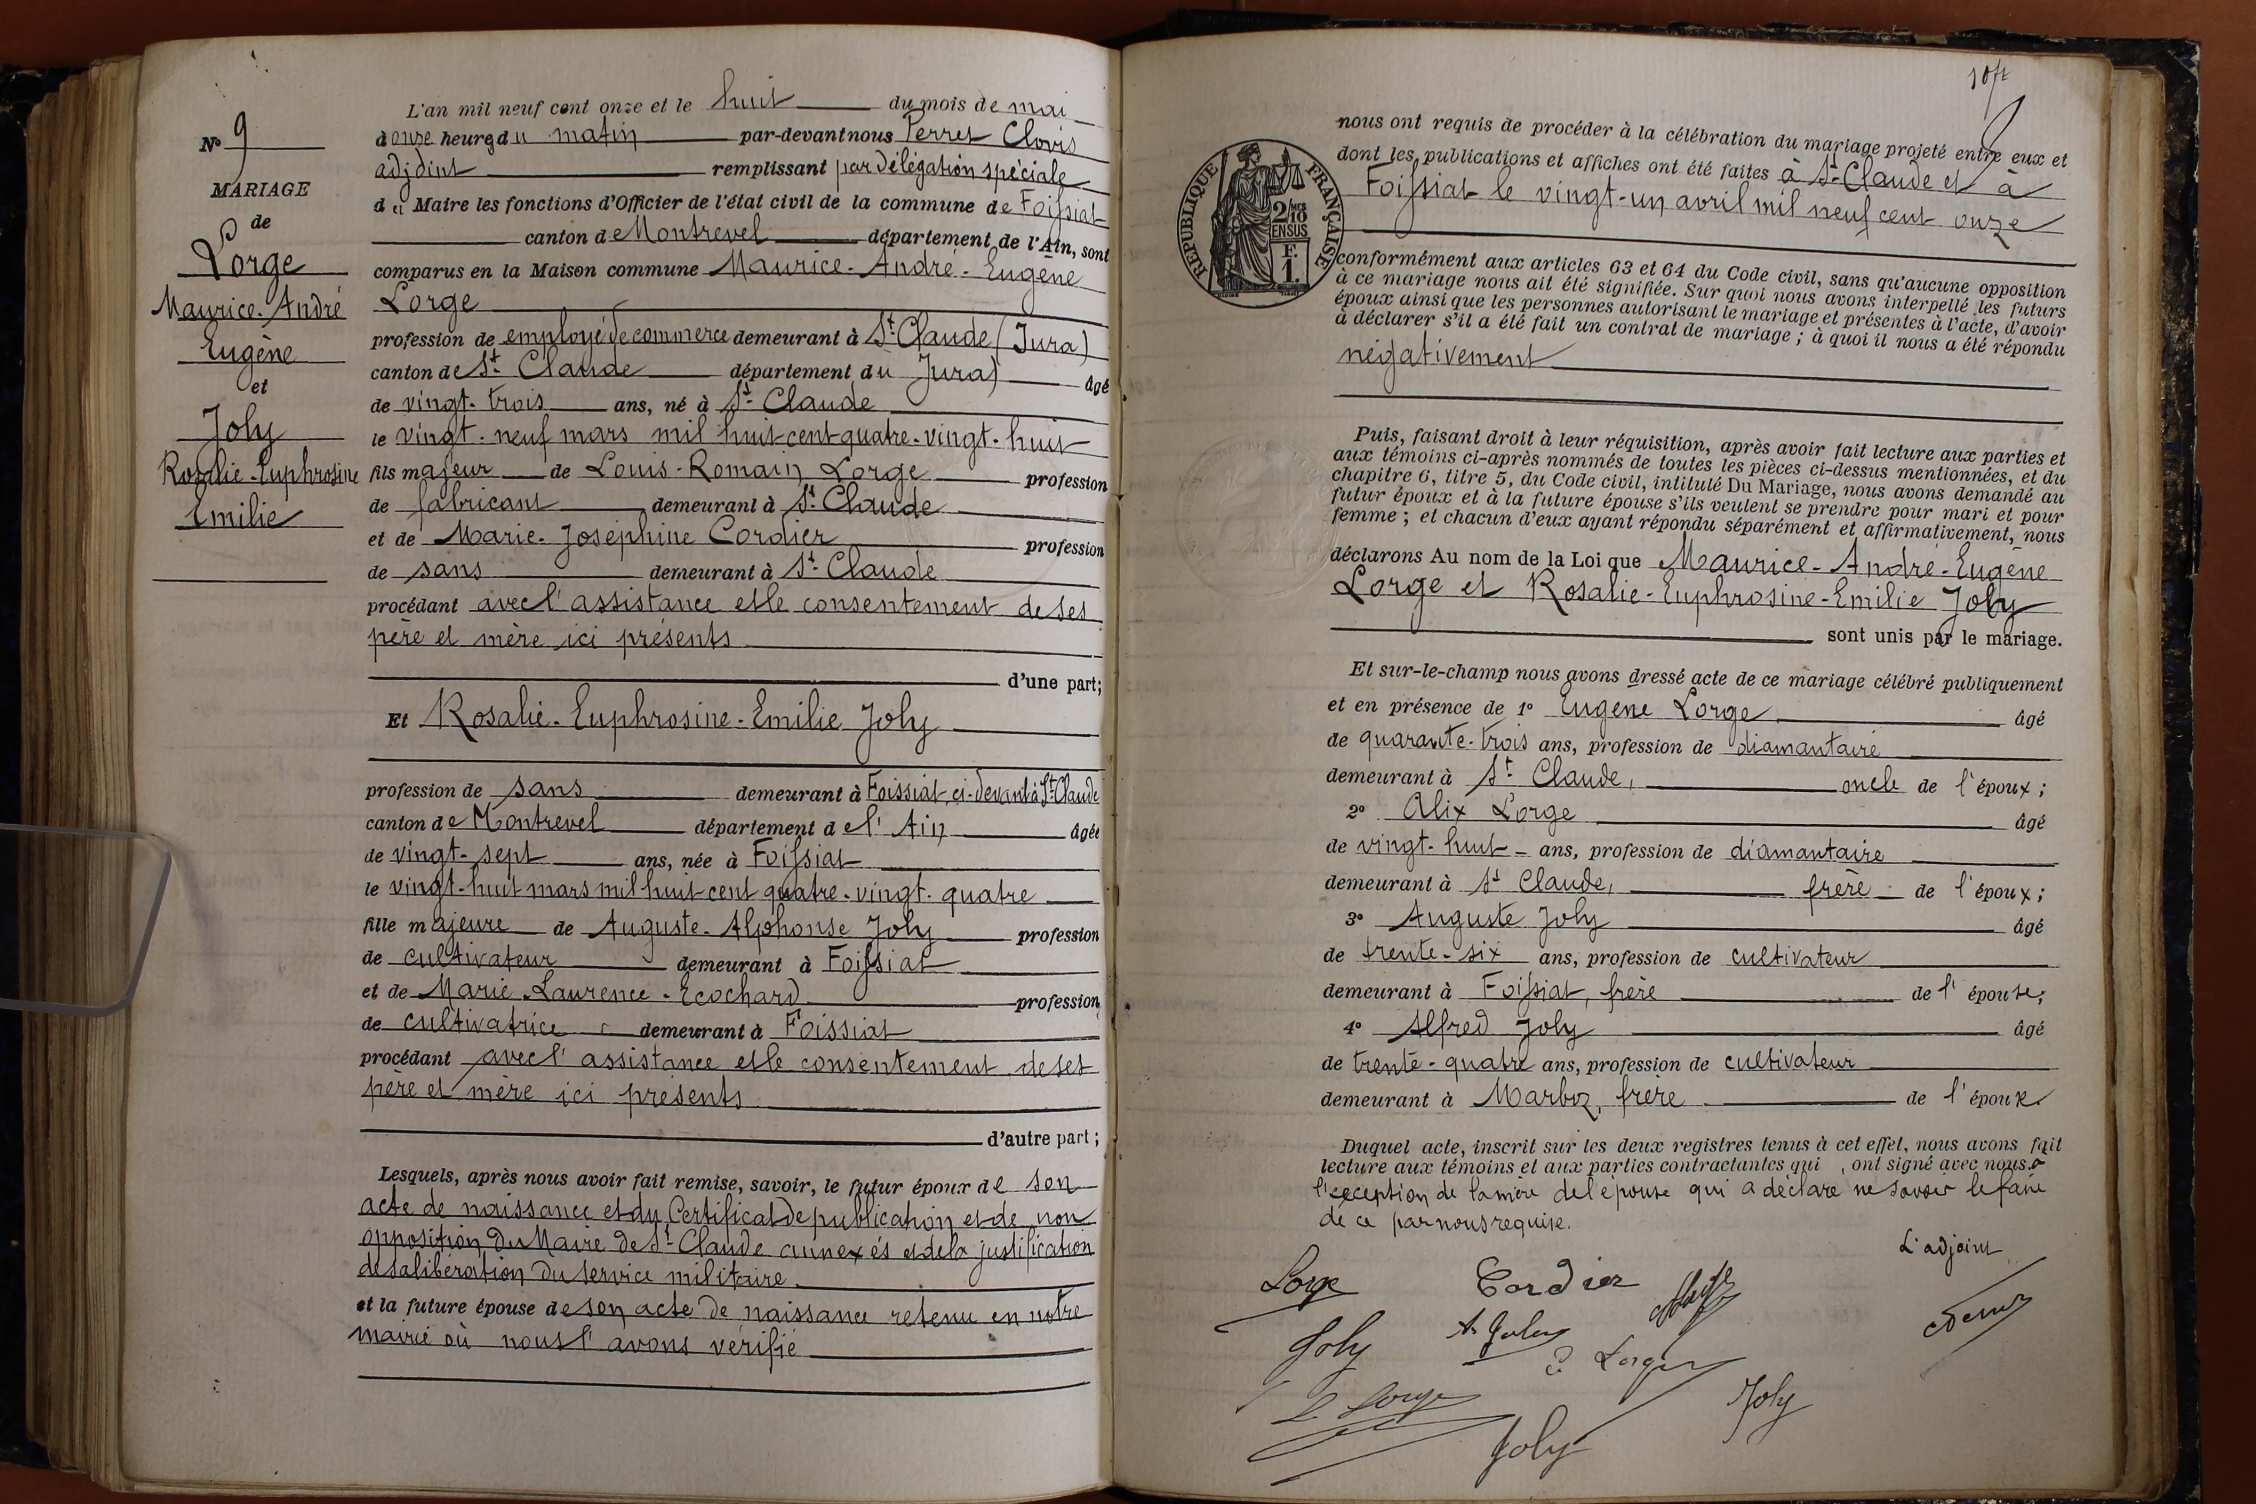 L'an mil neuf cent onze et le huit du mois de mai
à onze heures du matin par-devant nous Perret Clovis
adjoint remplissant par délégation spéciale
du Maire les fonctions d'Officier de l'état civil de la commune de Foissiat
canton de Montrevel département de l'Ain, sont
comparus en la Maison commune Maurice-André-Eugène
Lorge
profession de employé de commerce demeurant à St-Claude (Jura)
canton de St Claude département du Jura) âgé
de vingt-trois ans, né à St-Claude
le vingt-neuf mars mil huit-cent quatre-vingt-huit
fils majeur de Louis-Romain Lorge profession
de fabricant demeurant à St-Claude
et de Marie-Joséphine Cordier profession
de sans demeurant à St-Claude
procédant avec l'assistance et le consentement de ses
père et mère ici présents
d'une part;
Et Rosalie-Euphrosine-Emilie Joly
profession de sans demeurant à Foissiat, ci-devant à St-Claude
canton de Montrevel département de l'Ain âgée
de vingt-sept ans, née à Foissiat
le vingt-huit mars mil huit cent quatre-vingt-quatre
fille majeure de Auguste-Alphonse Joly profession
de cultivateur demeurant à Foissiat
et de Marie-Laurence-Ecochard profession
de cultivatrice demeurant à Foissiat
procédant avec l'assistance et le consentement de ses
père et mère ici présents
d'autre part;
Lesquels, après nous avoir fait remise, savoir, le futur époux de son
acte de naissance et du Certificat de publication et de non
opposition du Maire de St-Claude annexés et de la justification
de sa libération du service militaire.
et la future épouse de son acte de naissance retenu en notre
mairie où nous l'avons vérifié
No 9
MARIAGE
de
Lorge
Maurice-André
Eugène
et
Joly
Rosalie-Euphrosine
Emilie
nous ont requis de procéder à la célébration du mariage projeté entre eux et
dont les publications et affiches ont été faites à St-Claude et à
Foissiat le vingt-un avril mil neuf cent onze
conformément aux articles 63 et 64 du Code civil, sans qu'aucune opposition
à ce mariage nous ait été signifiée. Sur quoi nous avons interpellé les futurs
époux ainsi que les personnes autorisant le mariage et présentes à l'acte, d'avoir
à déclarer s'il a été fait un contrat de mariage; à quoi il nous a été répondu
négativement
RÉPUBLIQUE FRANÇAISE
2/10
EN SUS
F.
1.
Puis, faisant droit à leur réquisition, après avoir fait lecture aux parties et
aux témoins ci-après nommés de toutes les pièces ci-dessus mentionnées, et du
chapitre 6, titre 5, du Code civil, intitulé Du Mariage, nous avons demandé au
futur époux et à la future épouse s'ils veulent se prendre pour mari et pour
femme; et chacun d'eux ayant répondu séparément et affirmativement, nous
déclarons Au nom de la Loi que Maurice-André-Eugène
Lorge et Rosalie-Euphrosine-Emilie Joly
sont unis par le mariage.
Et sur-le-champ nous avons dressé acte de ce mariage célébré publiquement
et en présence de 1º Eugène Lorge âgé
de quarante-trois ans, profession de diamantaire
demeurant à St-Claude, oncle de l'époux;
2º Alix Lorge âgé
de vingt-huit ans, profession de diamantaire
demeurant à St Claude, frère de l'époux;
3º Auguste Joly âgé
de trente-six ans, profession de cultivateur
demeurant à Foissiat, frère de l'épouse;
4º Alfred Joly âgé
de trente-quatre ans, profession de cultivateur
demeurant à Marboz, frère de l'épouse.
Duquel acte, inscrit sur les deux registres tenus à cet effet, nous avons fait
lecture aux témoins et aux parties contractantes qui ont signé avec nous à
l'exception de la mère de l'épouse qui a déclaré ne savoir le faire
de ce par nous requise.
L'adjoint
Lorge Cordier
Joly A. Joly
E. Lorge
L. Lorge Joly
Joly